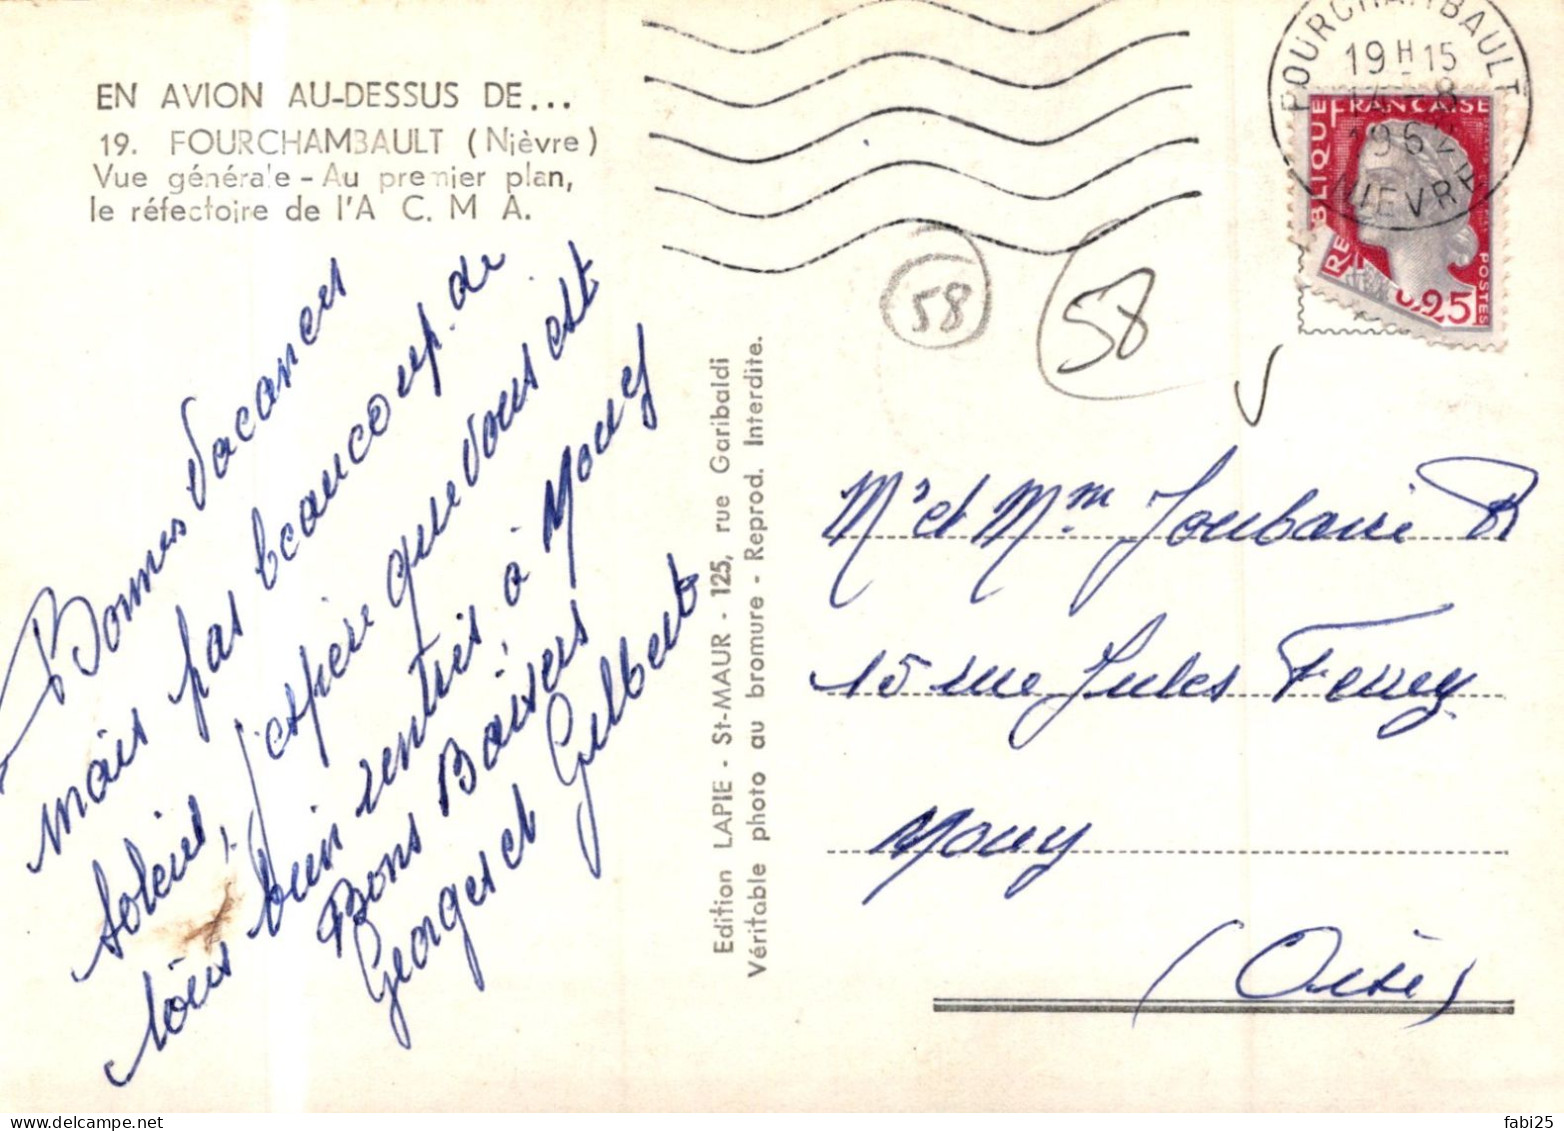 EN AVION AU-DESSUS DE...
19. FOURCHAMBAULT (Nièvre)
Vue générale - Au premier plan,
le réfectoire de l'A C. M A.
Bonnes Vacances
mais pas beaucoup de
soleil, j'espère que vous êtes
tous bien rentrés à Mouy
Bons Baisers
Georges et Gilberte
Edition LAPIE - St-MAUR - 125, rue Garibaldi
Véritable photo au bromure - Reprod. Interdite.
58
58
FOURCHAMBAULT
19 H 15
8
196
NIEVRE
REPUBLIQUE FRANÇAISE
0.25
POSTES
Mr et Mme Joubaire R
15 rue Jules Ferry
Mouy
(Oise)
fabi25